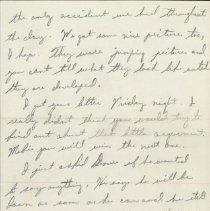 the only accident we had throughout
the day. We got some nice pictures too,
I hope. They were jumping pictures and
you cant tell what they look like until
they are developed.
I got your letter Friday night. I
really didn't think you would try to
find out about that little argument.
Maybe you will win the next one.
I just asked if he wanted
to say anything. He says he will be
home as soon as he can and he still